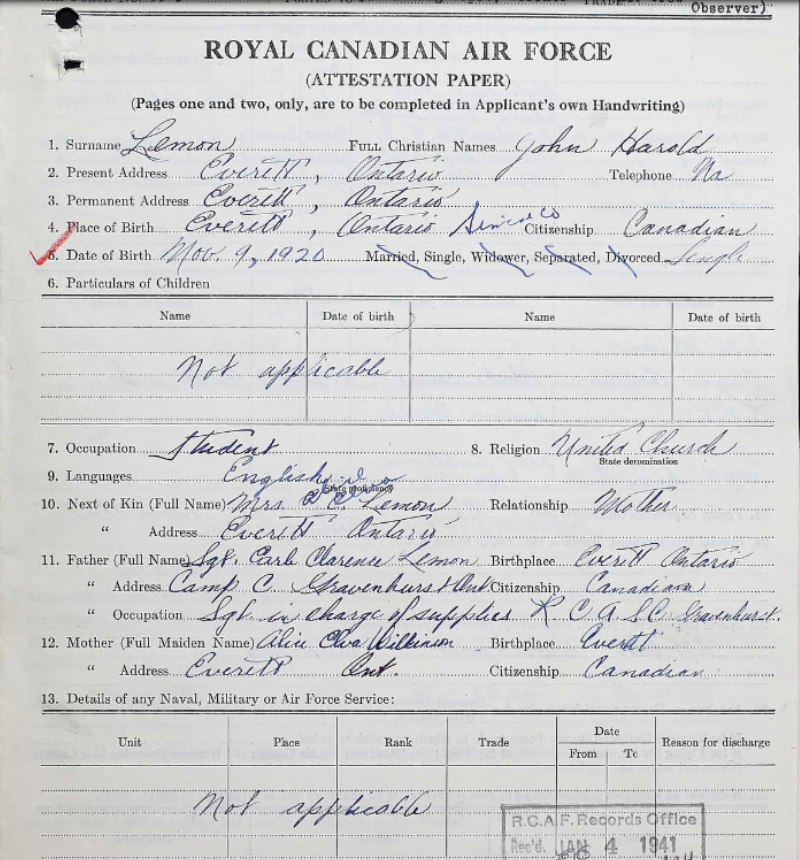 Observer)
ROYAL CANADIAN AIR FORCE
(ATTESTATION PAPER)
(Pages one and two, only, are to be completed in Applicant's own Handwriting)
1. Surname Lemon FULL Christian Names John Harold
2. Present Address Everett, Ontario Telephone No
3. Permanent Address Everett, Ontario
4. Place of Birth Everett, Ontario Simcoe Co Citizenship Canadian
5. Date of Birth Nov. 9, 1920 Married, Single, Widower, Separated, Divorced Single
6. Particulars of Children
Name Date of birth Name Date of birth
Not applicable
7. Occupation Student 8. Religion United Church
State denomination
9. Languages English
State proficiency
10. Next of Kin (Full Name) Mrs. C. Lemon Relationship Mother
" Address Everett Ontario
11. Father (Full Name) Sgt. Earl Clarence Lemon Birthplace Everett Ontario
" Address Camp C Gravenhurst Ont. Citizenship Canadian
" Occupation Sgt in charge of supplies R C A S C Gravenhurst.
12. Mother (Full Maiden Name) Alice Wilkinson Birthplace Everett
" Address Everett Ont. Citizenship Canadian
13. Details of any Naval, Military or Air Force Service:
Unit Place Rank Trade Date Reason for discharge
From To
Not applicable
R.C.A.F. Records Office
Rec'd. JAN 4 1941